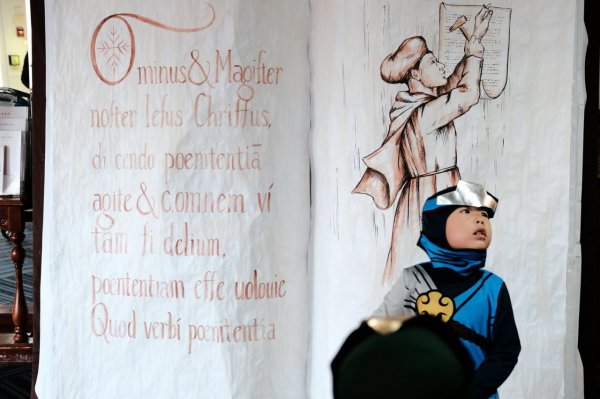 Ominus & Magiſter
noſter Ieſus Chriſtus,
di cendo poenitentiã
agite & comnem ví
tàm fi delium,
poententiam eſſe uolouie
Quod verbí poenitentia